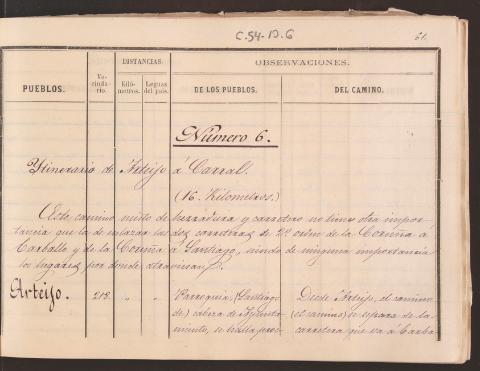 C-54-D.6
61.
PUEBLOS.
Vecindario.
DISTANCIAS.
Kilómetros.
Leguas del pais.
OBSERVACIONES.
DE LOS PUEBLOS.
DEL CAMINO.
Número 6.
Ytinerario de Arteijo á Carral.
(16. Kilometros.)
Este camino misto de herradura y carretero no tiene otra impor-
tancia que la de enlazar las dos carreteras de 2º orden de la Coruña á
Carballo y de la Coruña á Santiago, siendo de ninguna importancia
los lugares por donde atraviesan.
Arteijo.
213.
"
"
Parroquia, (Santiago
de) cabeza de Ayunta-
miento, se halla
Desde Arteijo, el camino
(el camino) se separa de la
carretera que va á Carba-